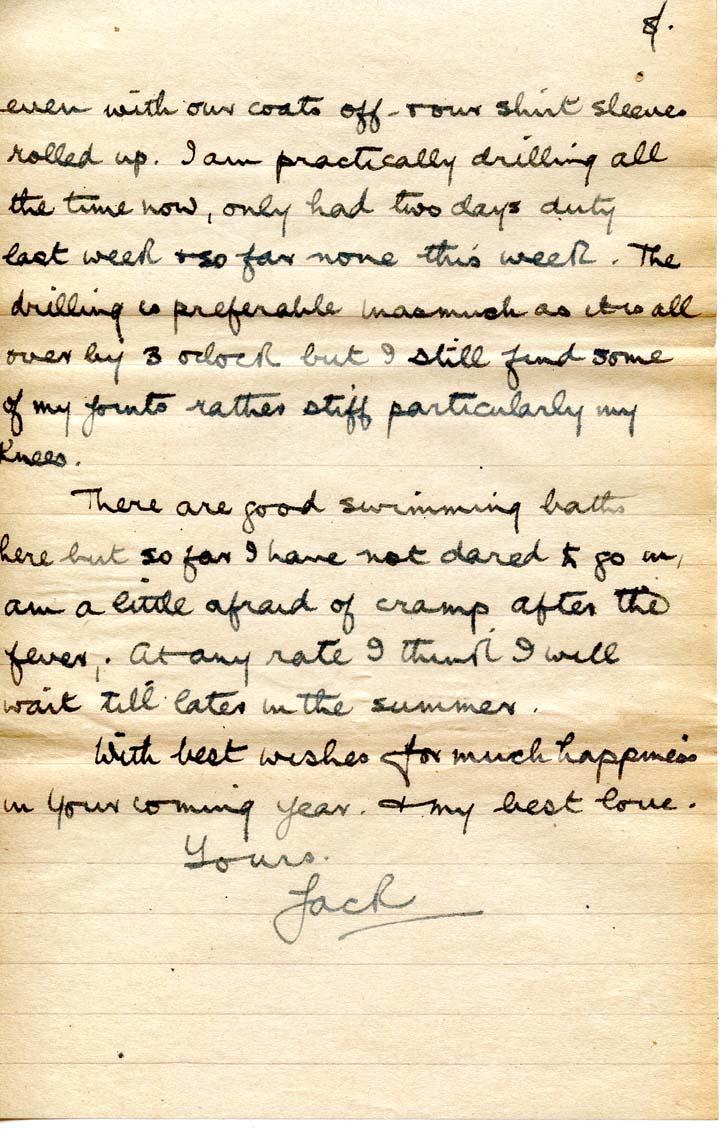 8/.
even with our coats off - & our shirt sleeves
rolled up. I am practically drilling all
the time now, only had two days duty
last week & so far none this week. The
drilling is preferable inasmuch as it is all
over by 3 oclock but I still find some
of my joints rather stiff particularly my
Knees.
There are good swimming baths
here but so far I have not dared to go in,
am a little afraid of cramp after the
fever,. At any rate I think I will
wait till later in the summer.
With best wishes for much happiness
in your coming year. & my best love.
Yours.
Jack